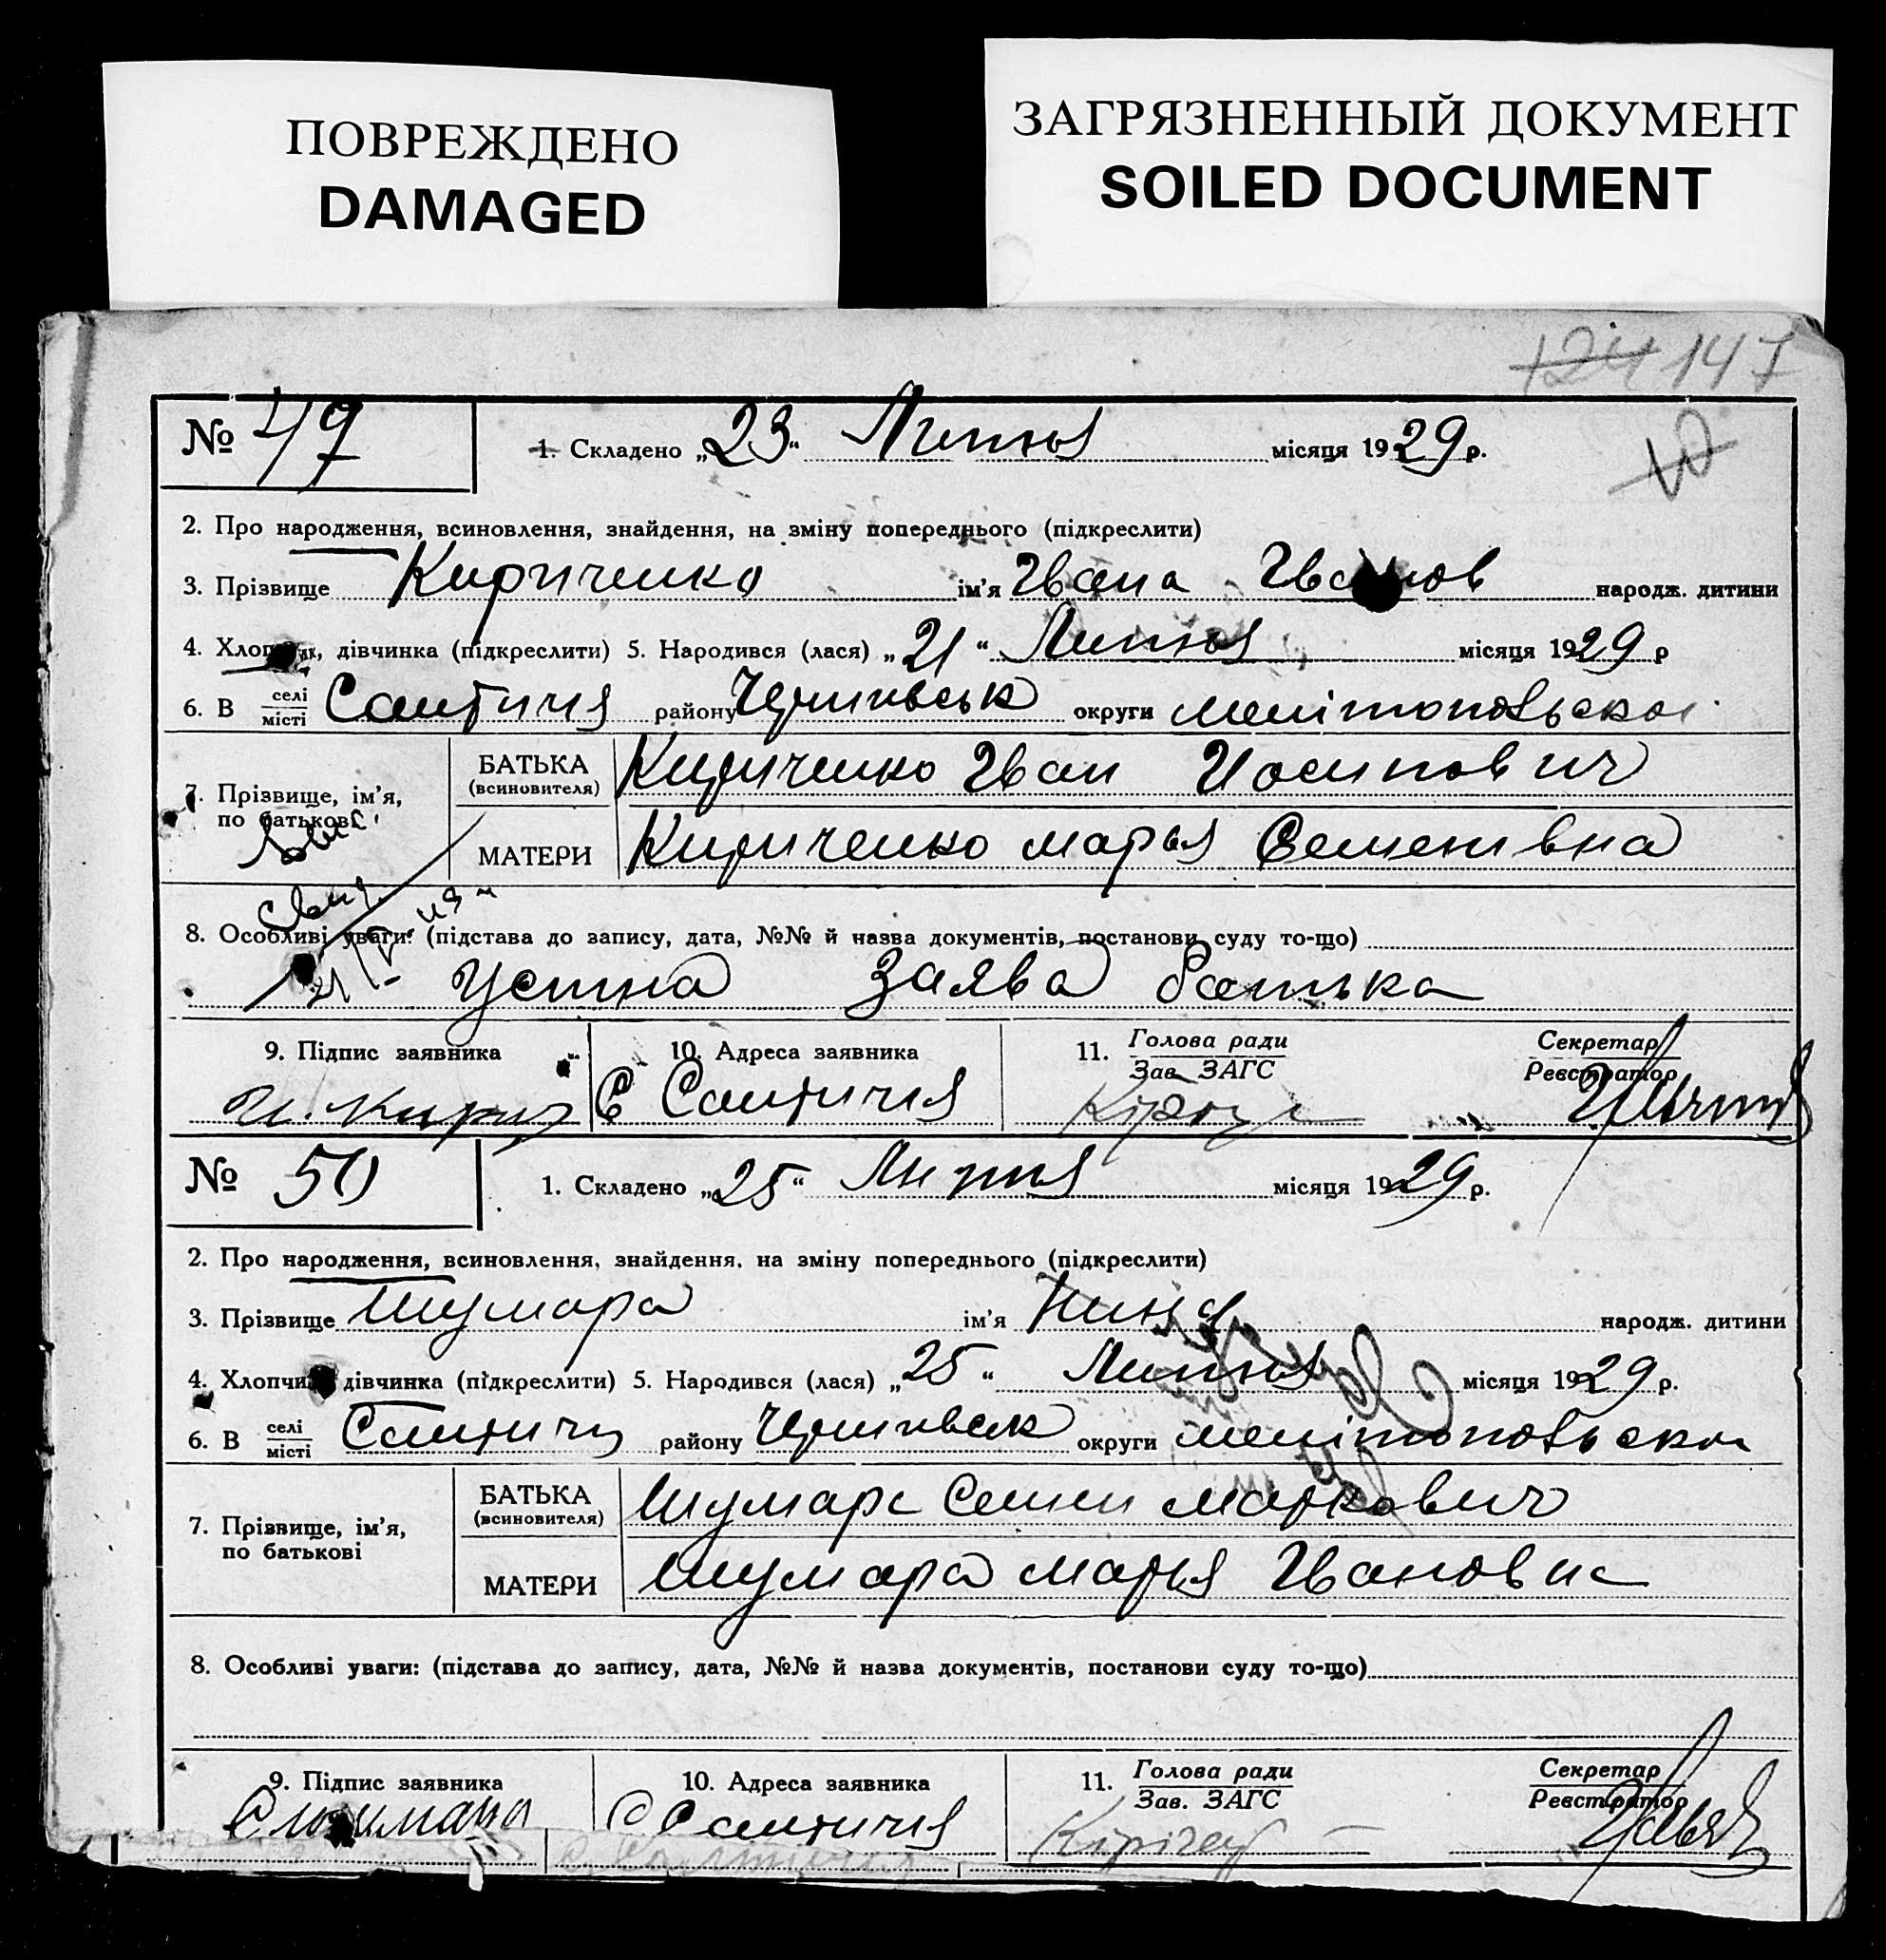 ПОВРЕЖДЕНО
DAMAGED
ЗАГРЯЗНЕННЫЙ ДОКУМЕНТ
SOILED DOCUMENT
124 147
№ 49
1. Складено „23“ Липня місяця 1929 р.
2. Про народження, всиновлення, знайдення, на зміну попереднього (підкреслити)
3. Прізвище Кириченко ім’я Ивана Иванов народж. дитини
4. Хлопчик, дівчинка (підкреслити) 5. Народився (лася) „21“ Липня місяця 1929 р
6. В селі місті району Чернигівськ округи Мелітопольскої
7. Прізвище, ім’я, по батькові
БАТЬКА (всиновителя) Кириченко Иван Иосипович
МАТЕРИ Кириченко Марья Семенивна
8. Особливі уваги: (підстава до запису, дата, №№ й назва документів, постанови суду то-що)
Устна Заява батька
9. Підпис заявника
10. Адреса заявника
11. Голова ради Зав. ЗАГС
Секретар Реєстратор
И. Кирич
С
№ 50
1. Складено „25“ Липня місяця 1929 р.
2. Про народження, всиновлення, знайдення, на зміну попереднього (підкреслити)
3. Прізвище Шумара ім’я Нина народж. дитини
4. Хлопчик, дівчинка (підкреслити) 5. Народився (лася) „25“ Липня місяця 1929 р.
6. В селі місті району Чернигівск округи Мелітопольскої
7. Прізвище, ім’я, по батькові
БАТЬКА (всиновителя) Шумара Семен Маркович
МАТЕРИ Шумара Марья Ивановна
8. Особливі уваги: (підстава до запису, дата, №№ й назва документів, постанови суду то-що)
9. Підпис заявника
10. Адреса заявника
11. Голова ради Зав. ЗАГС
Секретар Реєстратор